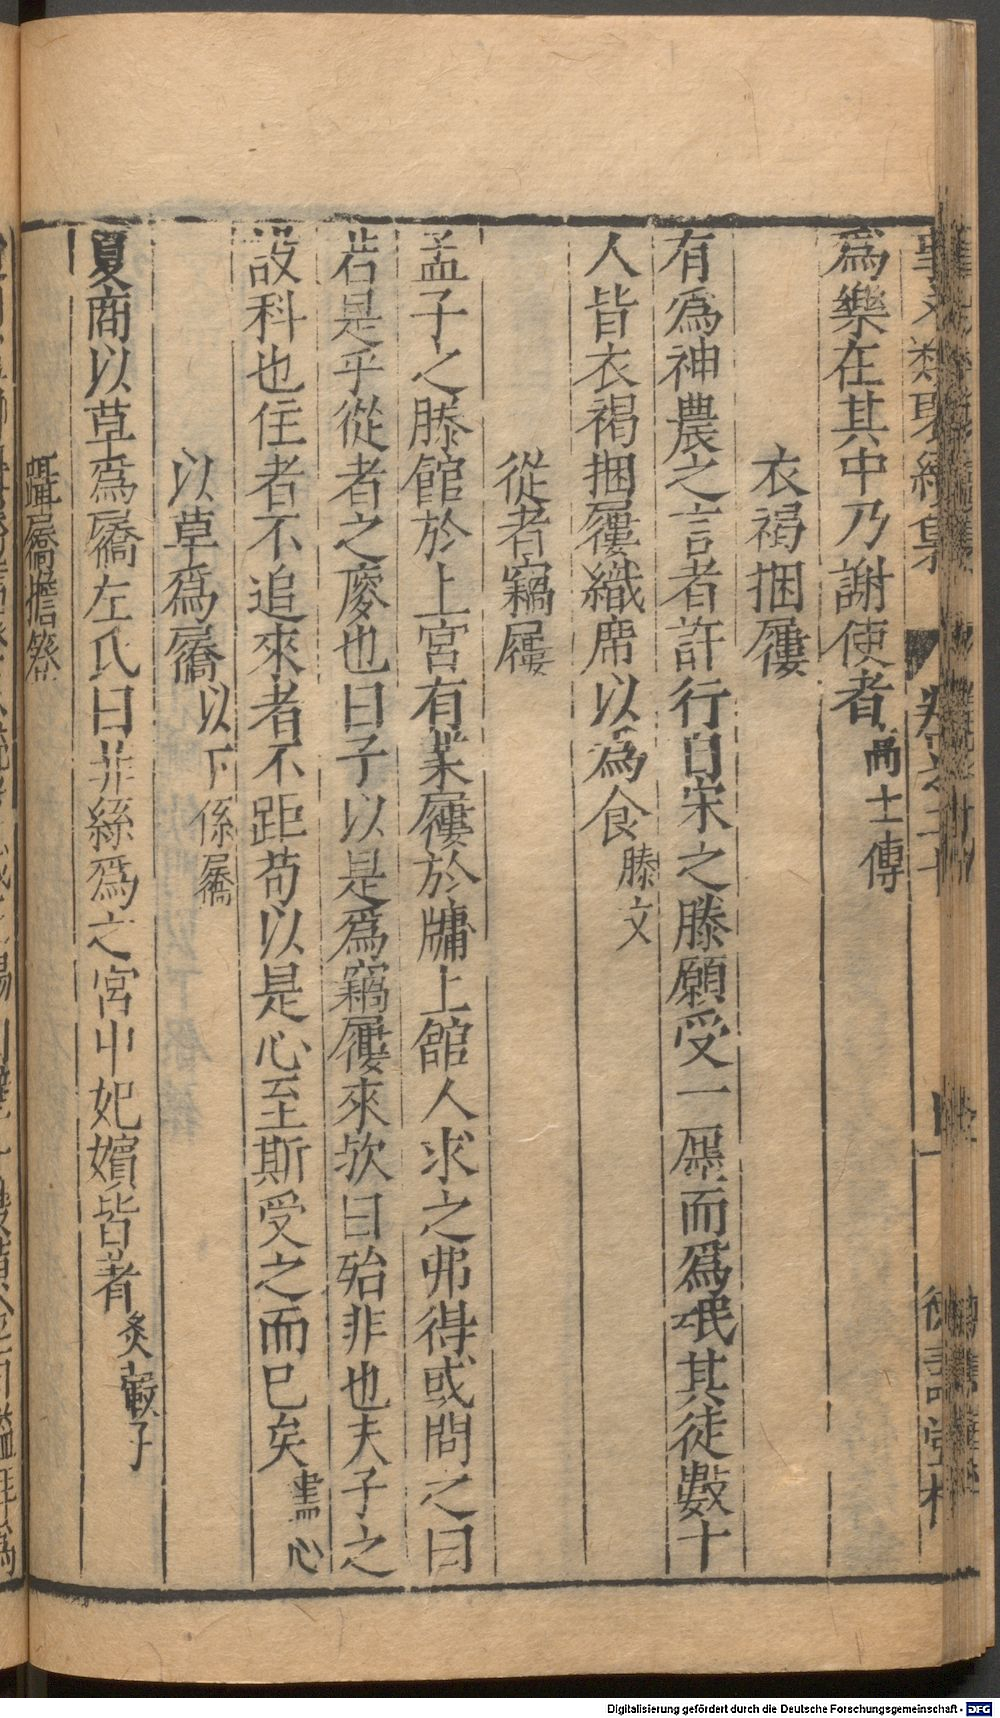 事文類聚續集 卷之二十 德壽堂梓
爲樂在其中乃謝使者高士傳
衣褐捆屨
有爲神農之言者許行自宋之滕願受一廛而爲氓其徒數十
人皆衣褐捆屨織席以為食滕文
從者竊屨
孟子之滕館於上宮有業屨於牖上館人求之弗得或問之曰
若是乎從者之廋也曰子以是爲竊屨來歟曰殆非也夫子之
設科也住者不追來者不距苟以是心至斯受之而已矣盡心
以草爲屩以下係屩
夏商以草爲屩左氏曰菲絲爲之宮中妃嬪皆著炙轂子
躡屩擔簦
Digitalisierung gefördert durch die Deutsche Forschungsgemeinschaft - DFG